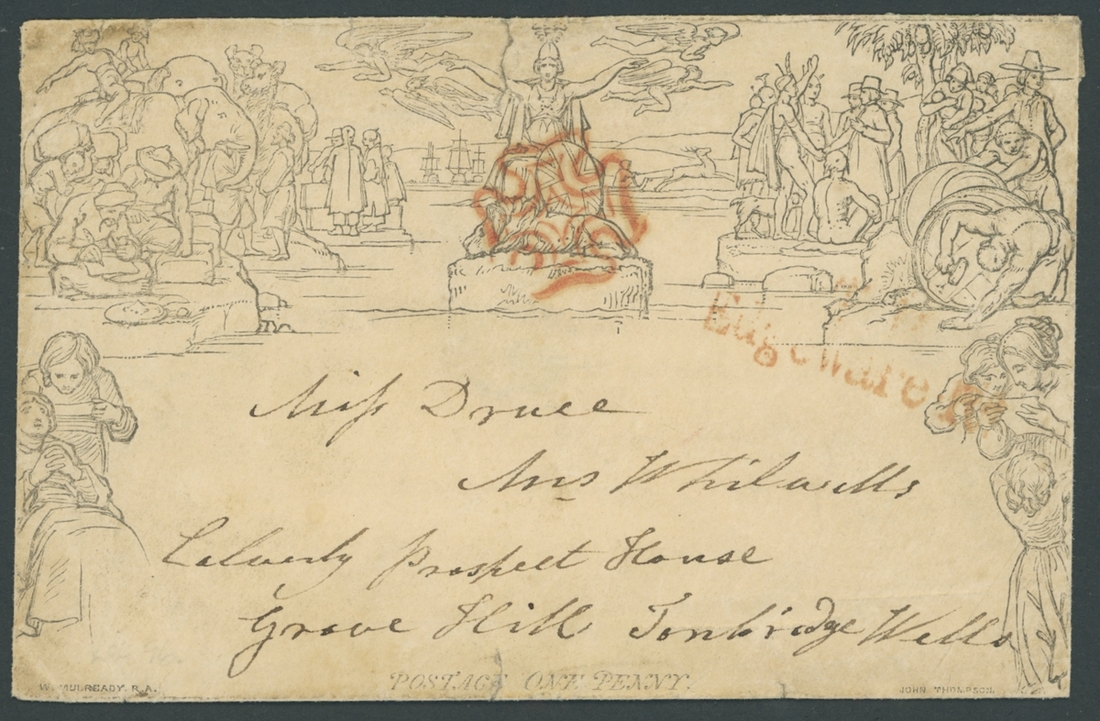 Edgeware R
Miss Druce
Mrs Whitwells
Calverly Prospect House
Grove Hill Tonbridge Wells
POSTAGE ONE PENNY.
W. MULREADY. R.A.
JOHN THOMPSON.